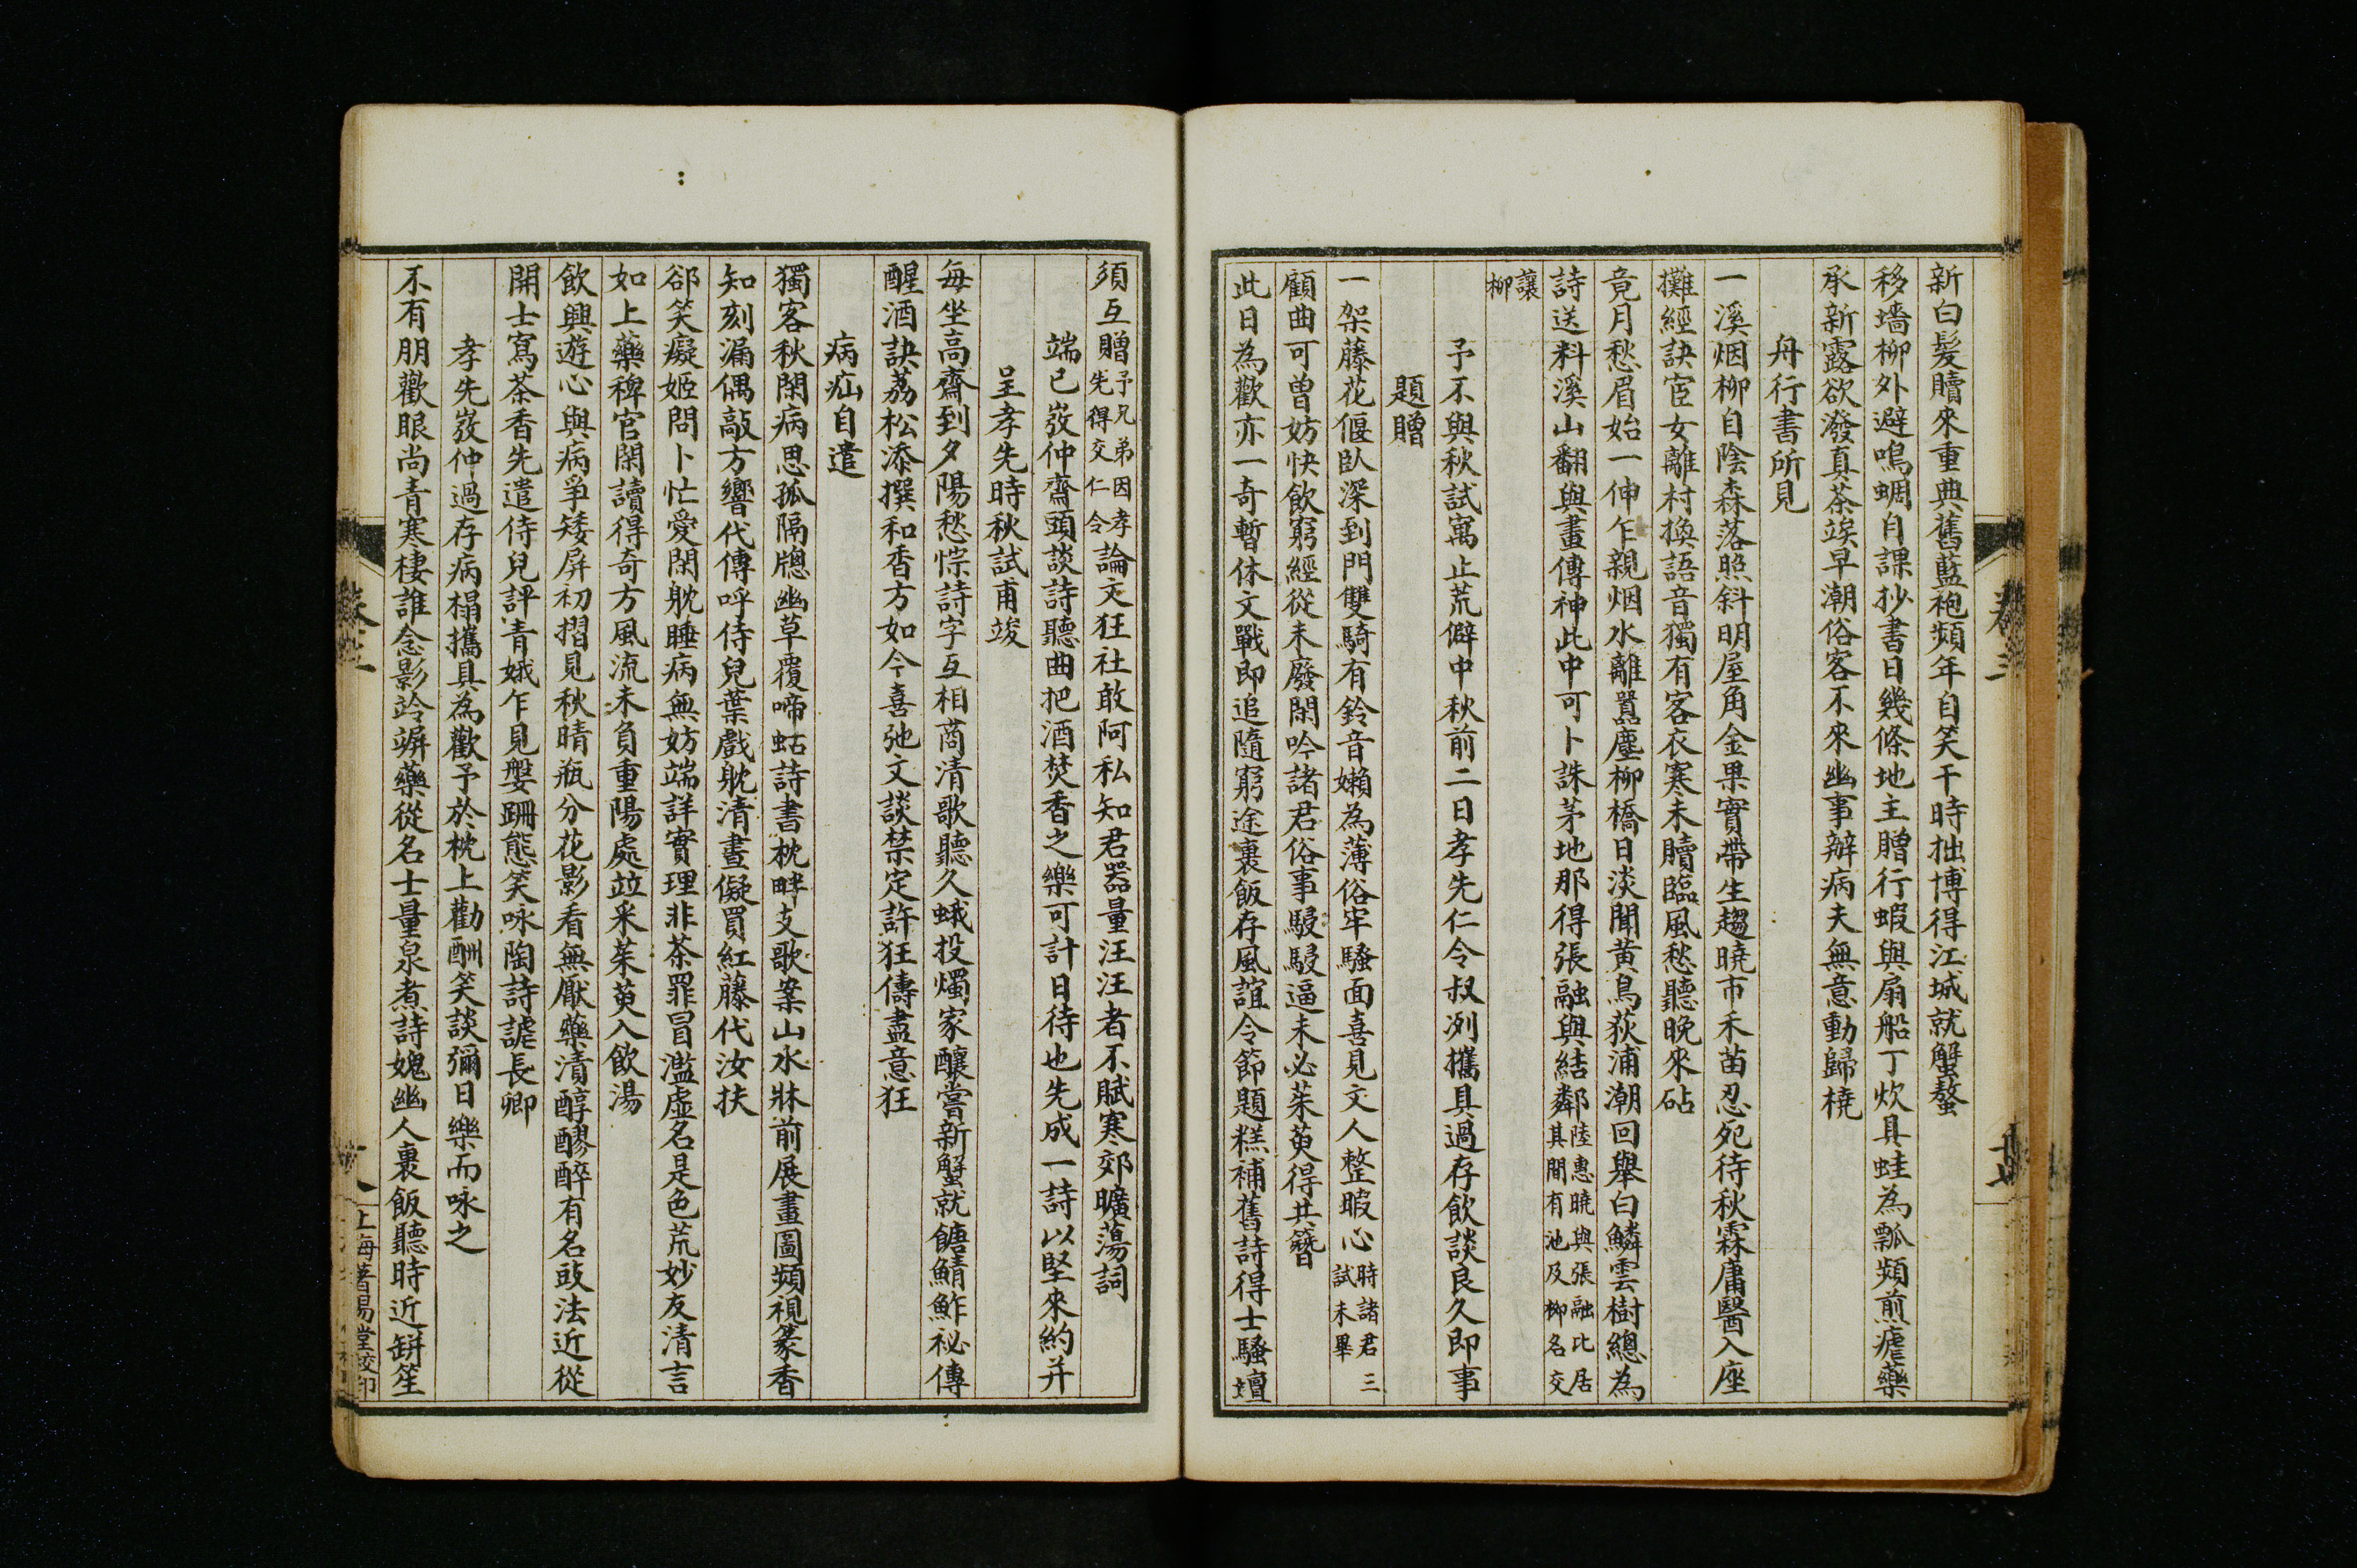 新白髮贖來重典舊藍袍頻年自笑干時拙博得江城就蟹螯
移墻柳外避鳴蜩自課抄書日幾條地主贈行蝦與扇船丁炊具蛙為瓢頻煎瘧藥
承新露欲潑真茶竢早潮俗客不來幽事辦病夫無意動歸橈
舟行書所見
一溪烟柳自陰森落照斜明屋角金果實帶生趨曉市禾苗忍死待秋霖庸醫入座
攤經訣宦女離村換語音獨有客衣寒未贖臨風愁聽晚來砧
竟月愁眉始一伸乍親烟水離囂塵柳橋日淡聞黃鳥荻浦潮回舉白鱗雲樹總為
詩送料溪山翻與畫傳神此中可卜誅茅地那得張融與結鄰陸惠曉與張融比居其間有池及柳名交
讓柳
予不與秋試寓止荒僻中秋前二日孝先仁令叔冽攜具過存飲談良久即事
題贈
一架藤花偃臥深到門雙騎有鈴音嬾為薄俗牢騷面喜見文人整暇心時諸君三試未畢
顧曲可曾妨快飲窮經從未廢閑吟諸君俗事駸駸逼未必茱萸得共簪
此日為歡亦一奇暫休文戰即追隨窮途裹飯存風誼令節題糕補舊詩得士騷壇
卷三
十七
須互贈予兄弟因孝先得交仁令論文狂社敢阿私知君器量汪汪者不賦寒郊曠蕩詞
端已㪅仲齋頭談詩聽曲把酒焚香之樂可計日待也先成一詩以堅來約并
呈孝先時秋試甫竣
每坐高齋到夕陽愁悰詩字互相商清歌聽久蛾投燭家釀嘗新蟹就餹鯖鮓祕傳
醒酒訣荔松添撰和香方如今喜弛文談禁定許狂儔盡意狂
病疝自遣
獨客秋閑病思孤隔牕幽草覆啼蛄詩書枕畔支歌案山水牀前展畫圖頻視篆香
知刻漏偶敲方響代傳呼侍兒葉戲躭清晝儗買紅藤代汝扶
郤笑癡姬問卜忙愛閑躭睡病無妨端詳實理非茶罪冒濫虛名是色荒妙友清言
如上藥稗官閑讀得奇方風流未負重陽處竝采茱萸入飲湯
飲興遊心與病爭矮屏初摺見秋晴瓶分花影看無厭藥漬醇醪醉有名豉法近從
開士寫茶香先遣侍兒評青娥乍見媻跚態笑咏陶詩謔長卿
孝先㪅仲過存病榻攜具為歡予於枕上勸酬笑談彌日樂而咏之
不有朋歡眼尚青寒棲誰念影竛竮藥從名士量泉煮詩媿幽人裹飯聽時近缾笙
上海著易堂校印